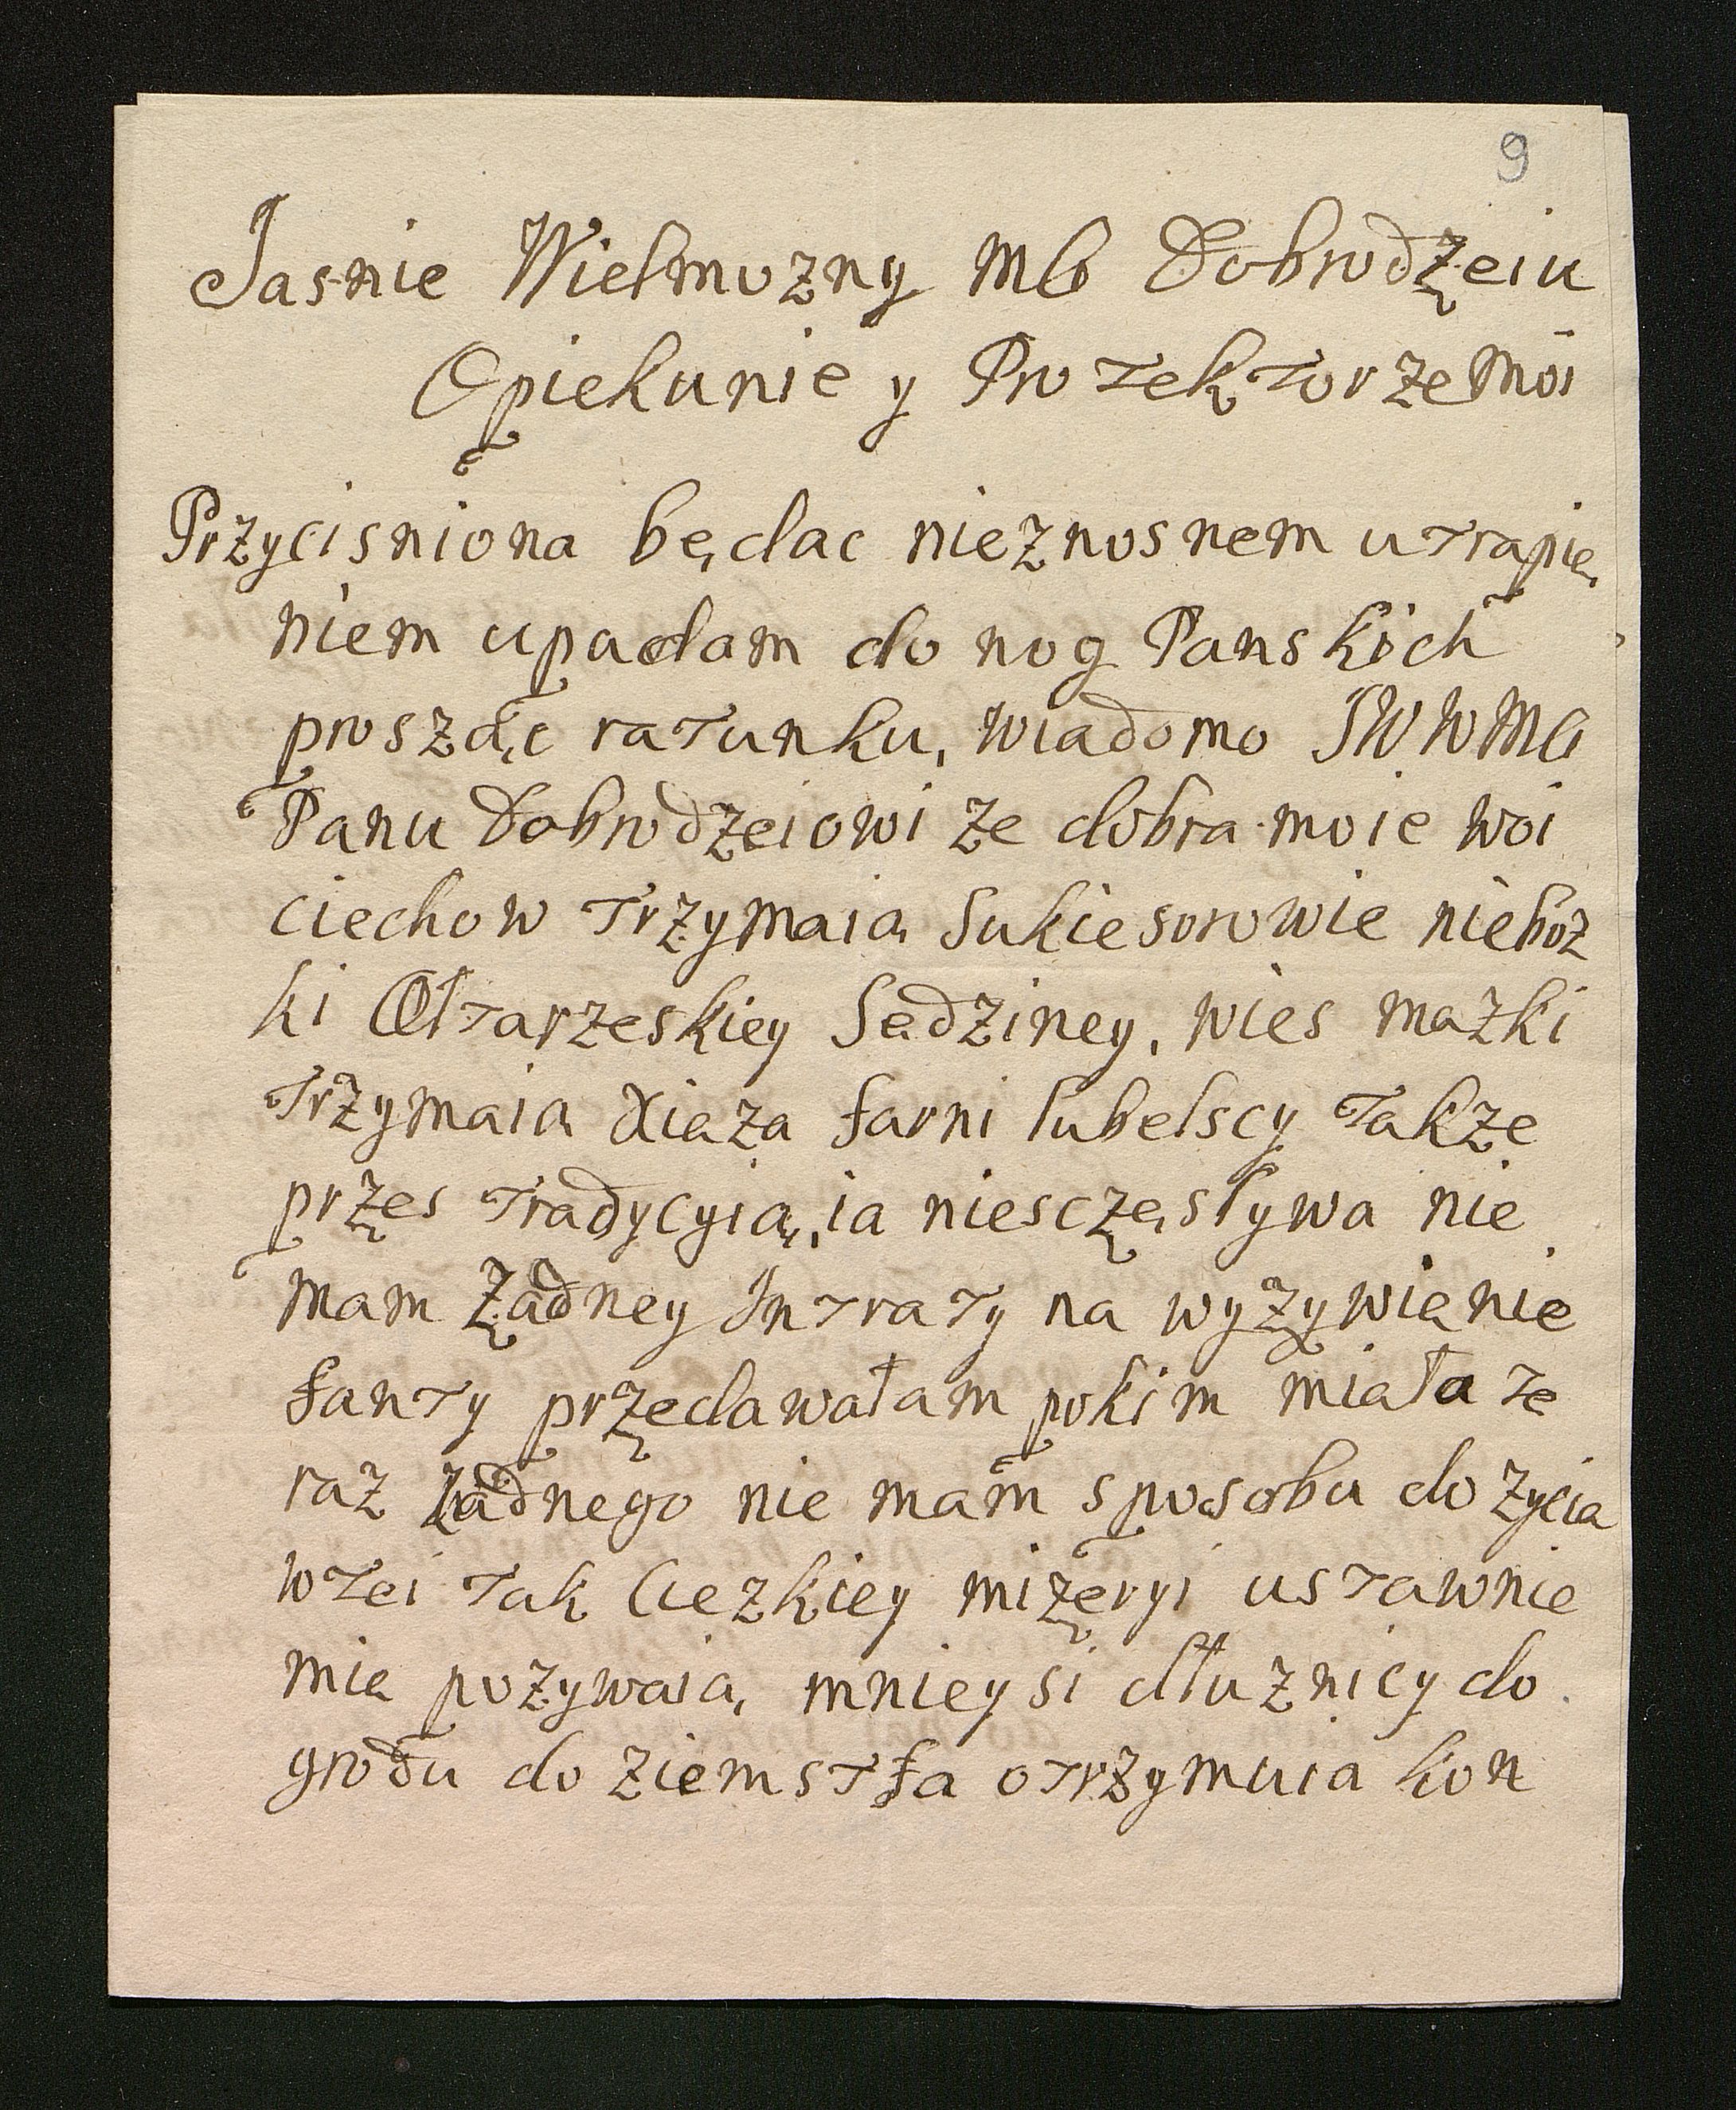 9
Jasnie Wielmozny MG Dobrodzeiu
Opiekunie y Protektorze Moi
Przycisniona będac nieznosnem utrapię
niem upadam do nog Panskich
proszdąc ratunku, wiadomo JWWMG
Panu Dobrodzeiowi ze dobra moie woi
ciechow trzymaią Sukiesorowie nieboz
ki Ołtarzeskiey Sedziney, wies mazki
trzymaia Xiaza farni lubelscy takze
przes tradycyią, ia niesczęsływa nie
mam zadney Intraty na wyzywienie
fanty przedawałam pokim miała te
raz zadnego nie mam sposobu do zycia
w tei tak Ciezkiey mizeryi ustawnie
mie pozywaią, mnieysi dłuznicy do
grodu do ziemstfa otrzymuia kon